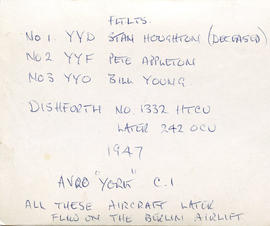 FLTLTS.
No 1. YYD STAN HOUGHTON (DECEASED)
No 2 YYF PETE APPLETON
No 3 YYO BILL YOUNG.
DISHFORTH NO. 1332 HTCU
LATER 242 OCU
1947
AVRO "YORK" C.1
ALL THESE AIRCRAFT LATER
FLEW ON THE BERLIN AIRLIFT